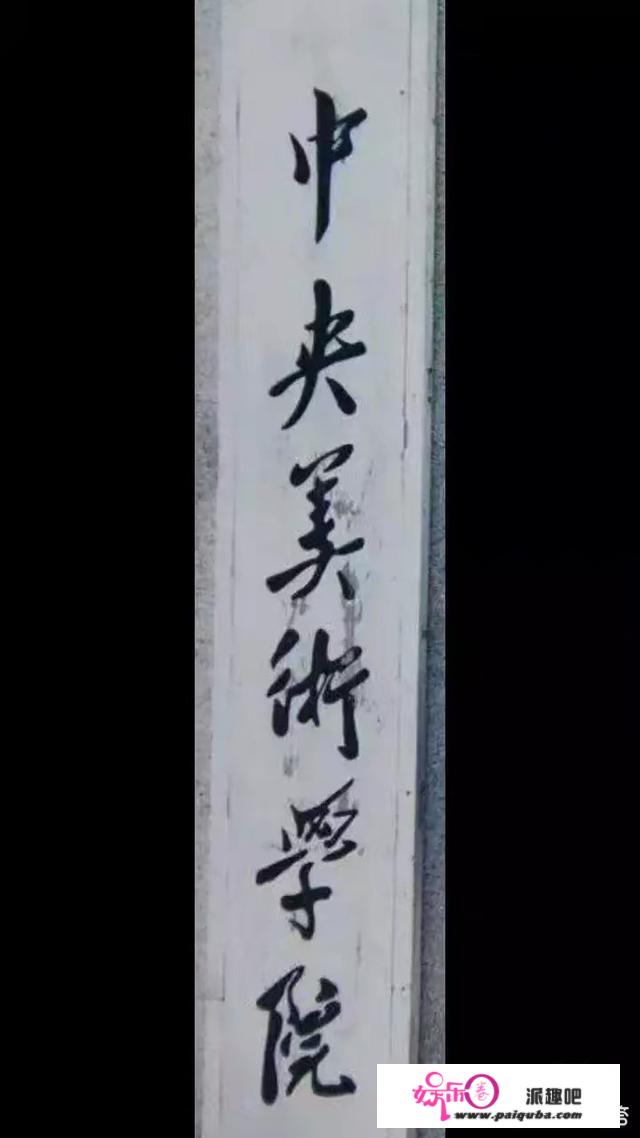 中央美術學院
娱乐圈
派趣吧
www.paiquba.com